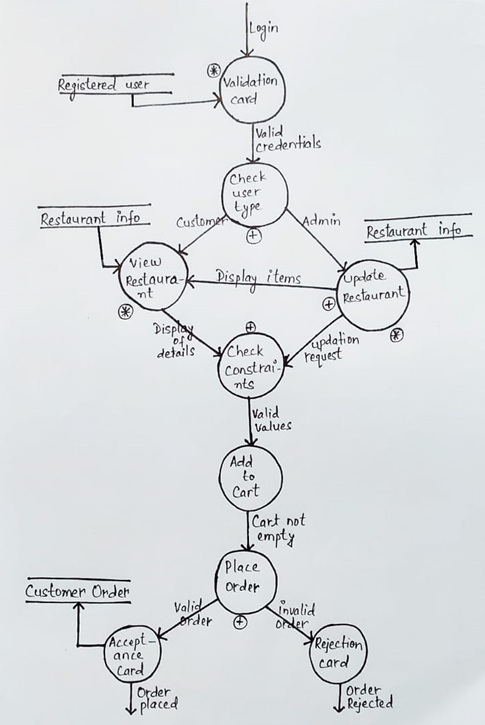 Login
Registered user
*
Validation
card
Valid
credentials
Check
user
type
+
Restaurant info
Customer
Admin
Restaurant info
View
Restaura-
nt
*
Display items
Update
Restaurant
+
*
Display
of
details
+
Check
Constrai-
nts
updation
request
Valid
values
Add
to
Cart
Cart not
empty
Place
Order
+
Customer Order
Valid
order
invalid
order
Accept-
ance
Card
Rejection
card
Order
placed
Order
Rejected